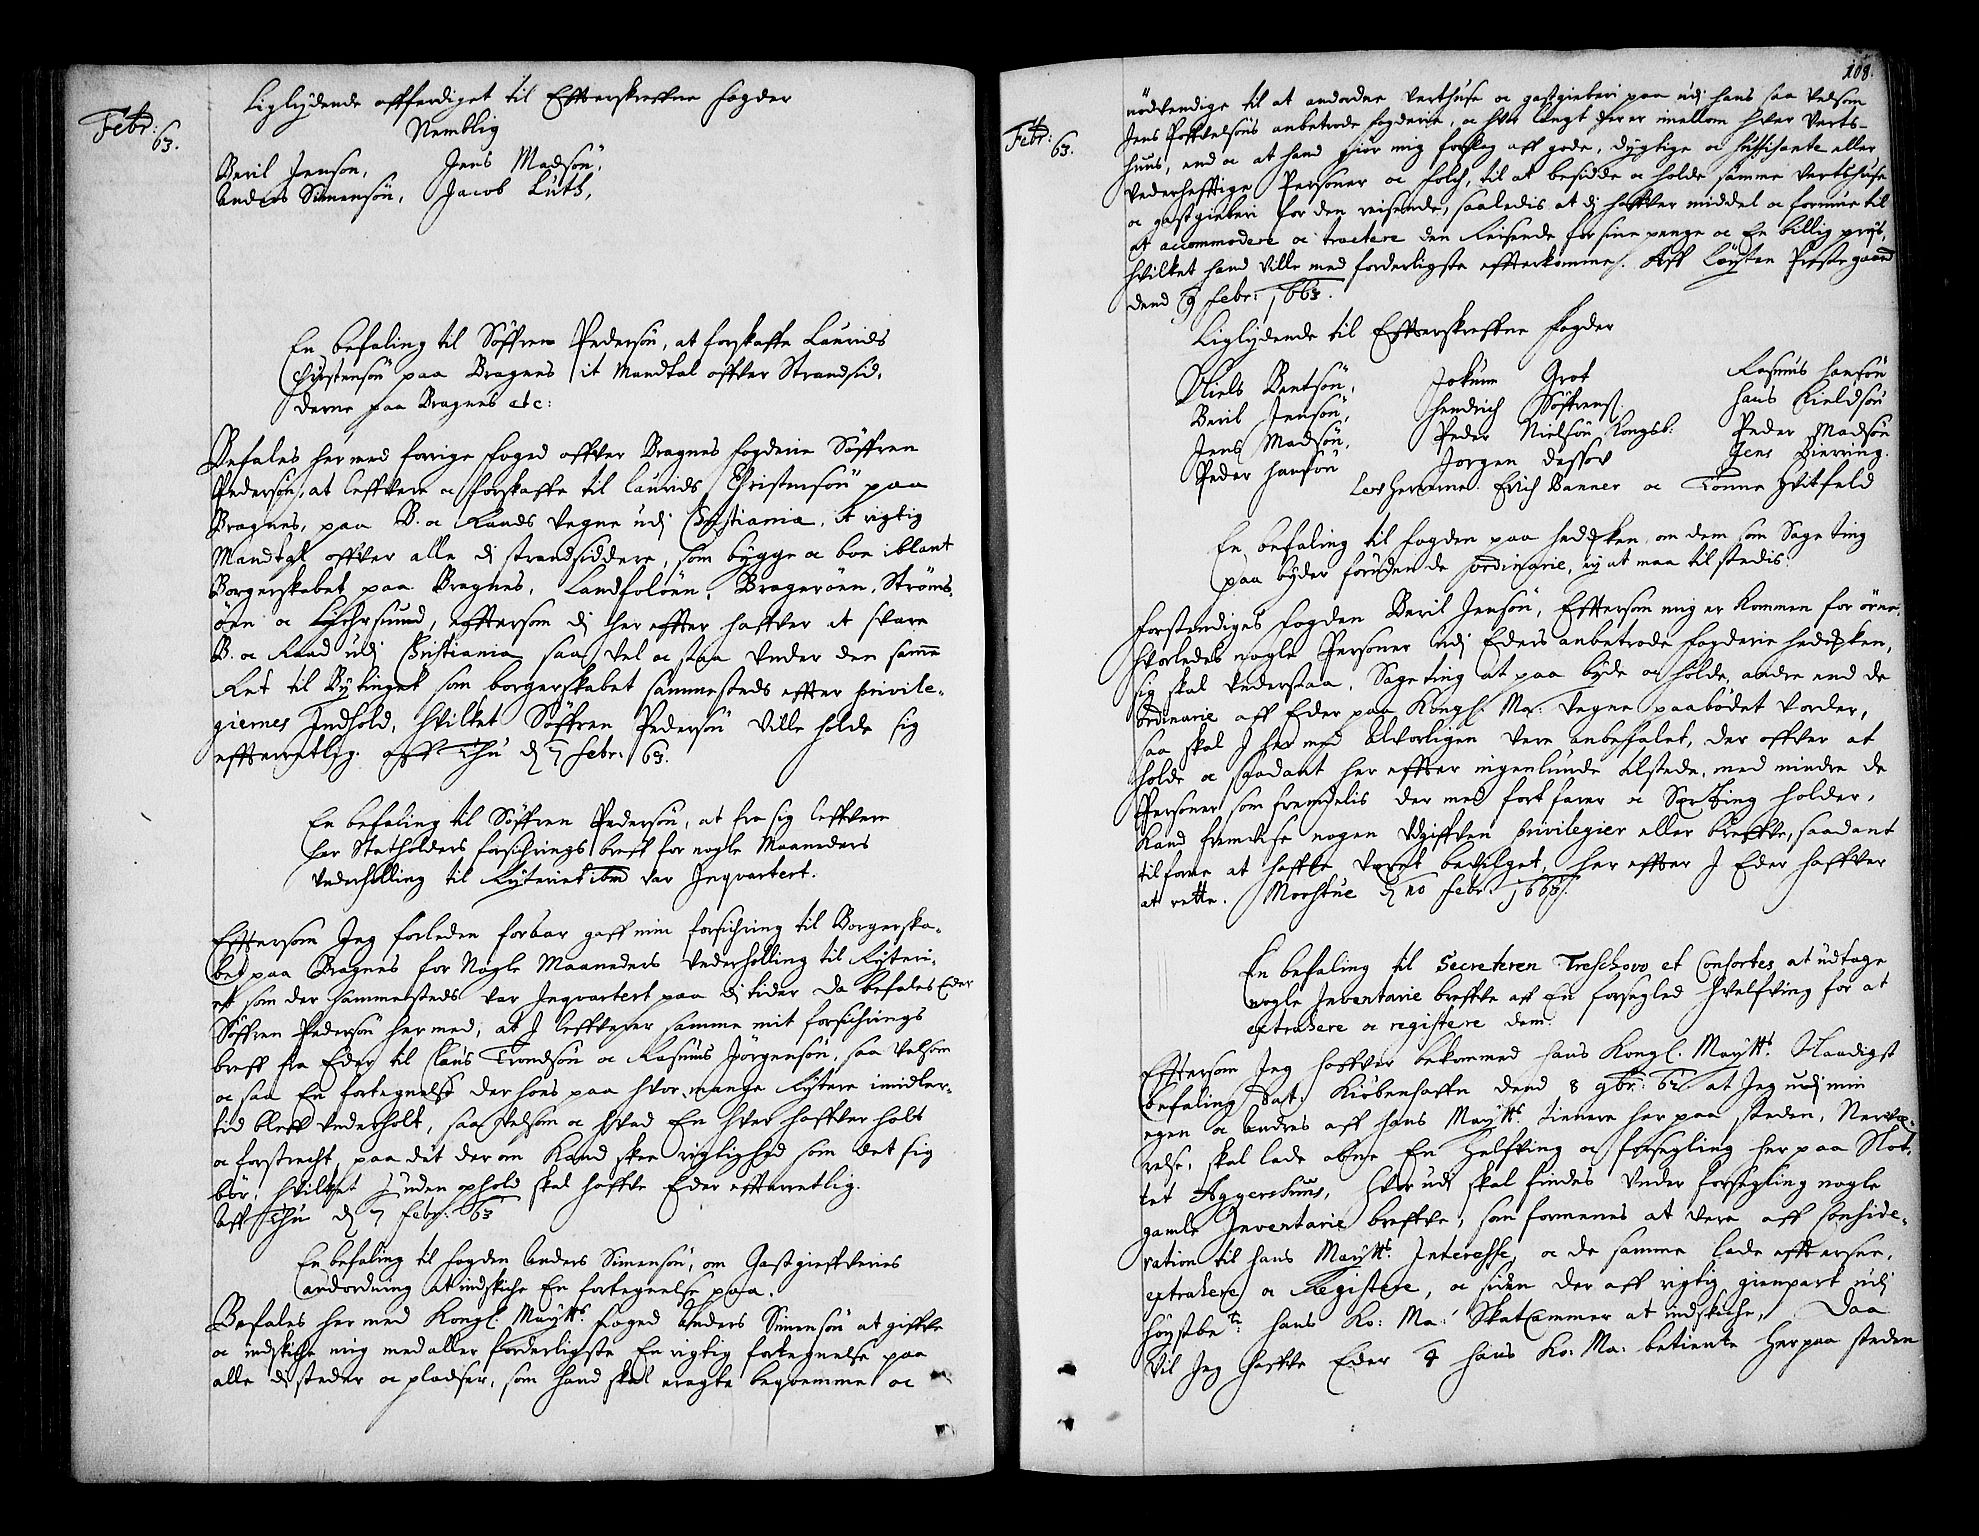 Febr: 63.
Liglydende affferdiget til Effterskreffne fogder
Nemblig
Beril Jenson, Jens Madsön,
Anders Simensön, Jacob Luth,
En befaling til Söffren Pedersön, at forskaffe Laurids
Christensön paa Bragnes it Mandtal offver Strandsid-
derne paa Bragnes etc:
Befales hermed forrige foged offver Bragnes fogderie Söffren
Pedersön, at leffvere oc forskaffe til Laurids Christensön paa
Bragnes, paa B. oc Raads Vegne udj Christiania, it rigtig
Mandtal offver alle di strandsiddere, som bygge oc boe iblant
Borgerskabet paa Bragnes, Landfolöen, Brageröen, Ströms-
öen oc Lychesund, effttersom di her effter haffver at svare
B. oc Raad udj Christiania saa vel oc staa Under den samme
Ret til Bytinget som borgerskabet sammesteds effter privile-
giernes Indhold, hvilket Söffren Pedersön Ville holde sig
effterretlig. Aff Thu d 7 febr: 63.
En befaling til Söffren Pedersön, at fra sig leffvere
her Statholders forsichrings breff for nogle Maaneders
Underholling til Rytteriet ibm var Inqvartert.
Efftersom Jeg forleden forbar gaff min forsichring til Borgerska-
bet paa Bragnes for Nogle Maaneders Underholling til Rytteri-
et som der sammesteds var Inqvartert paa di tider Da befales Eder
Söffren Pedersön hermed, at J leffverer samme mit forsichrings
breff fra Eder til Claus Trondsön oc Rasmus Jörgensön, saa velsom
oc saa En fortegnelse der hoes paa hvor mange Ryttere imidler-
tid bleff underholt, saa velsom oc hvad En hver haffver holt
oc forstrecht, paa det der om kand skee rigtighed som det sig
bör, hvilket J uden ophold skal haffve Eder effterretlig.
Aff Thu d 7 febr: 63
En befaling til fogden Anders Simensön, om Gastgiefferies
anordning at indskiche En fortegnelse paa.
Befales hermed Kongl: Maytts foged Anders Simensön at giffve
oc indskiche mig med aller forderligste En rigtig fortegnelse paa
alle di steder oc pladser, som hand skal eragte beqvemme oc
108.
Febr: 63.
nödvendige til at anordne Verthuse oc gastgieberi paa udj hans saa velsom
Jens Poffvelsöns anbetrode fogderie, oc hvor langt der er imellom hver Verts-
huus, end oc at hand giör mig forslag aff gode, dygtige oc suffisante eller
Vederhefftige Personer oc folch, til at besidde oc holde samme Vertshuse
oc gastgieberi for den reisende, saaledis at di haffver middel oc formue til
at accommodere oc tractere den Reisende for sine penge oc En billig priis,
hvilket hand ville med forderligste effterkomme. Aff Löyten Prestegaard
dend 9 febr: 1663.
Liglydende til Effterskreffne fogder
Niels Bentsön, Jokum Grot Rasmus Hansön
Beril Jensön, Hendrich Söffrens. Hans Kieldsön
Jens Madsön, Peder Nielsön Kongsb: Peder Madsön
Peder Hansön Jörgen Dessov Jens Bierring.
Lensherrerne. Erich Banner oc Tönne Hvitfeld
En befaling til fogden paa Hedemken, om dem som Sageting
paa byder foruden de ordinarie, ey at maa tilstedis.
Forstendiges fogden Beril Jensön, Efftersom mig er kommen for öre
hvorledes nogle Personer udj Eders anbetrode fogderie Hedemken,
sig skal understaa, Sageting at paa byde oc holde, andre end de
ordinarie aff Eder paa Kongl: Ma: Vegne paabödet Vorder,
saa skal J hermed Alvorligen vere anbefalet, der offver at
holde oc saadant her effter ingenlunde tilstede, med mindre de
Personer som fremdelis der med fort farer oc Særting holder,
Kand fremvise nogen udgiffven privilegier eller breffve, saadant
tilforne at haffve verret bevilget, her effter J Eder haffver
at rette. Morstue d 10 febr: 1663.
En befaling til Secreteren Treschow et Consortes at udtage
nogle Inventarie breffve aff En forseglet Hvelfving for at
extrahere oc registere dem.
Efftersom Jeg haffver bekommed hans Kongl. Maytts. Naadigst
befaling Dat: Kiöbenhaffn dend 8 9br: 62 at Jeg udj min
egen oc Andres aff hans Maytts tienere her paa steden, Nerve-
relse, skal lade obne En Helfving oc forsegling her paa Slot-
tet Aggershuus, hvor udj skal findes Under forsegling nogle
gamle Inventarie breffve, som formenes at vere aff conside-
ration til hans Maytts. Interesse, oc de samme lade effterser,
extrahere oc Registere, oc siden der aff rigtig gienpart udj
höystbete: hans Ko: Ma: Skatcammer at indskiche, Daa
Vil Jeg haffve Eder hans Ko: Ma: betiente her paa steden